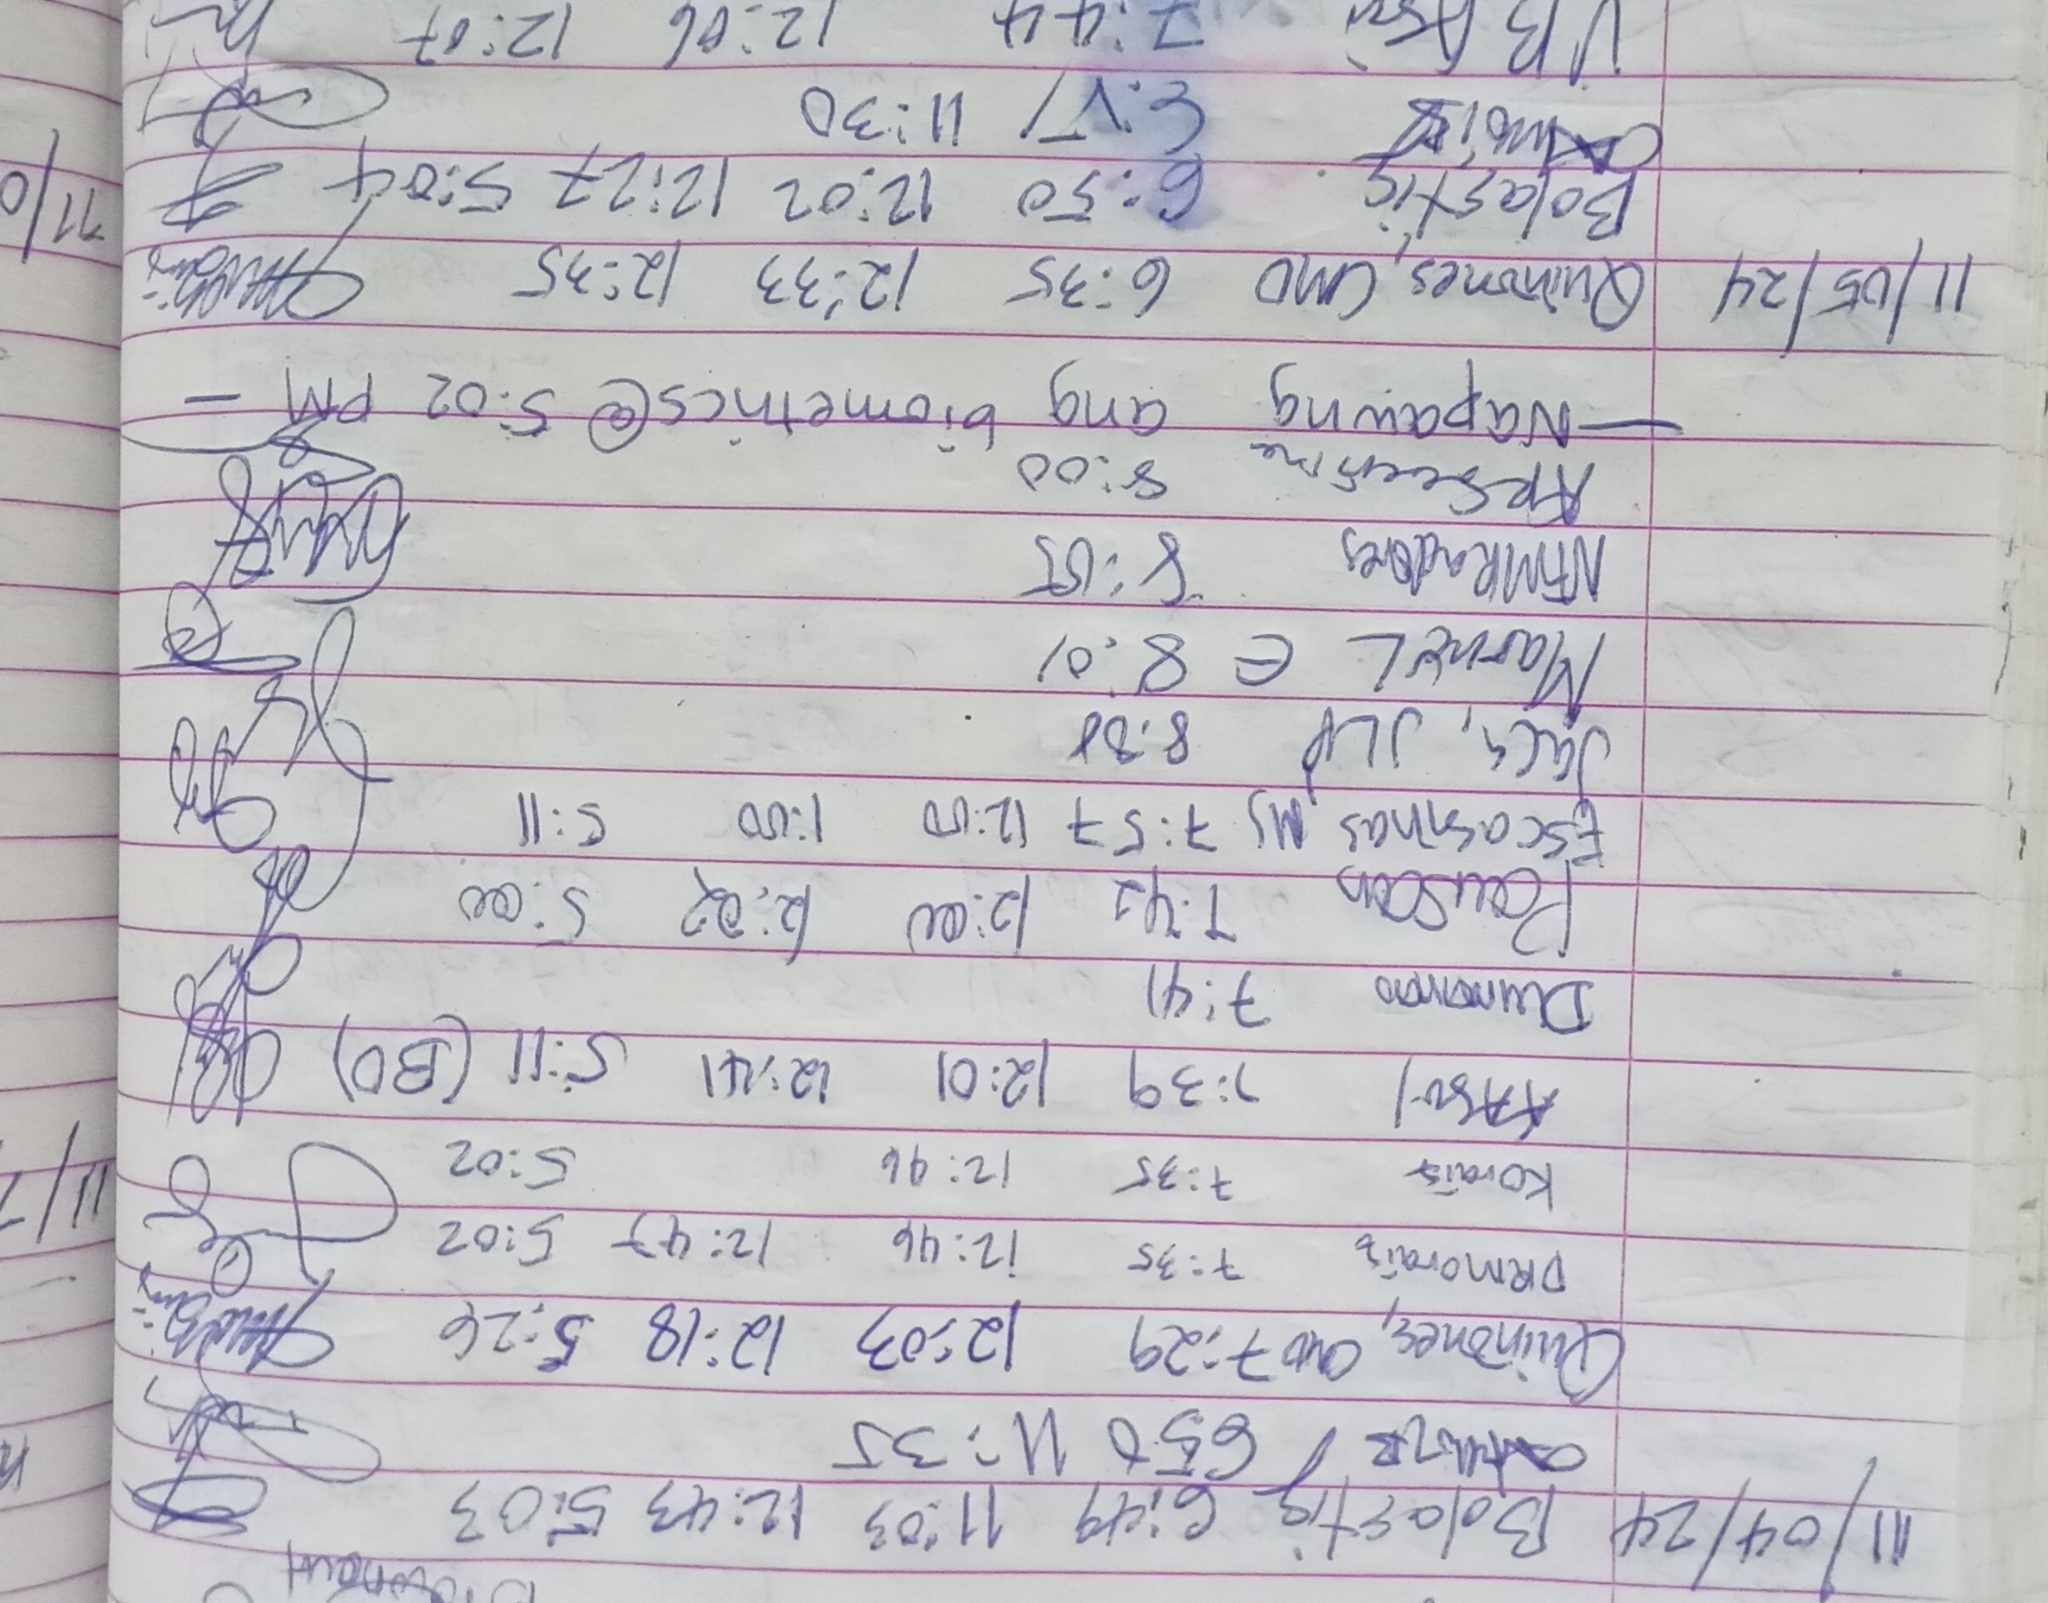 Brownout
11/04/24 Bolastig 6:49 11:03 12:43 5:03
650 11:35
Quinones, CMD 7:29 12:03 12:18 5:26
DRMorais 7:35 12:46 12:47 5:02
Korais 7:35 12:46 5:02
7:39 12:01 12:41 5:11 (BO)
7:41
Pauson 7:42 12:00 12:02 5:00
Escasinas MJ 7:57 12:00 1:00 5:11
JLP
Marnel E 8:01
NFMRadores 8:05
8:00
— Napawng ang biometrics @ 5:02 PM —
11/05/24 Quinones, CMD 6:35 12:33 12:35
Bolastig 6:50 12:02 12:27 5:04
11:30
VB 7:44 12:06 12:07
11/7